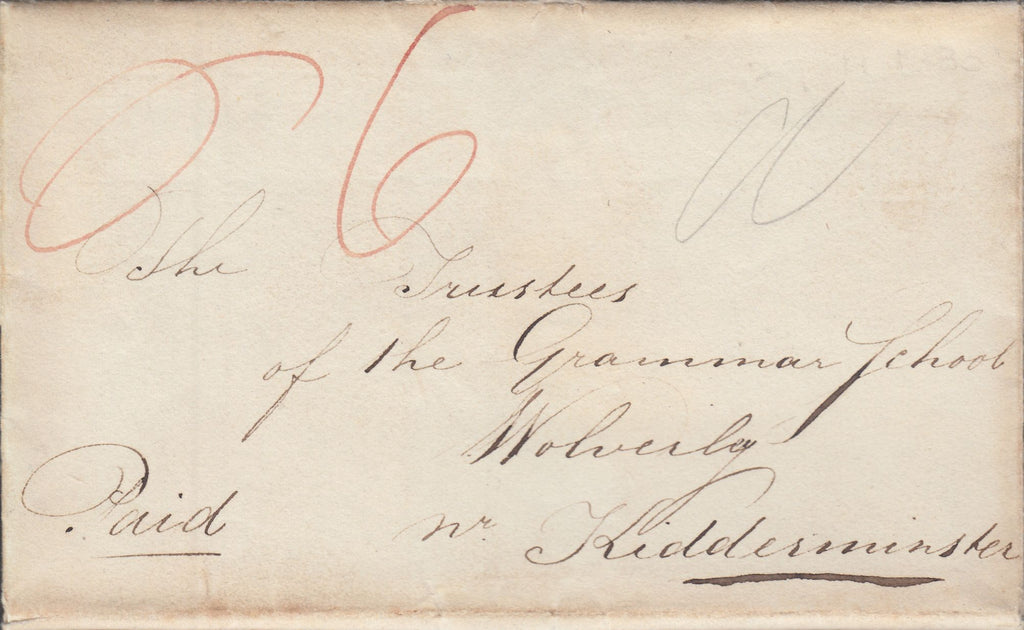 6
The Trustees
of the Grammar School
Wolverly
Paid nr Kidderminster